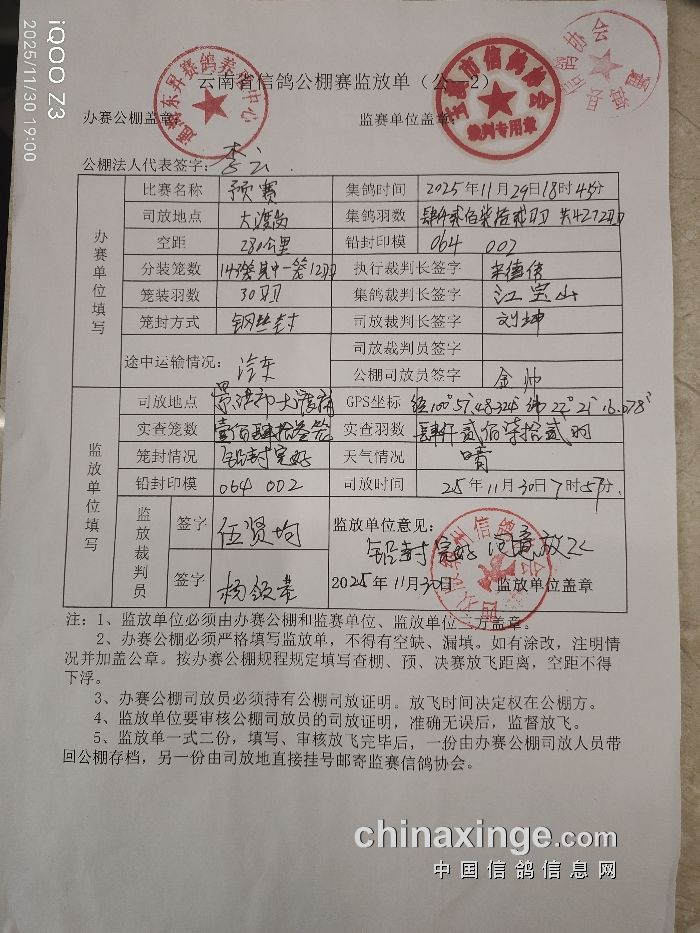 iQOO Z3
2025/11/30 19:00
云南省信鸽公棚赛监放单（公—2）
办赛公棚盖章： 监赛单位盖章：
裁判专用章
公棚法人代表签字：李云
办赛单位填写
比赛名称 预赛 集鸽时间 2025年11月29日18时45分
司放地点 大渡岗 集鸽羽数 肆仟贰佰柒拾贰羽 共4272羽
空距 280公里 铅封印模 064 002
分装笼数 143笼其中一笼12羽 执行裁判长签字 宋德信
笼装羽数 30羽 集鸽裁判长签字 江宝山
笼封方式 钢丝封 司放裁判长签字 刘坤
途中运输情况： 汽车 司放裁判员签字
公棚司放员签字 金帅
监放单位填写
司放地点 景洪市大渡岗 GPS坐标 经100°57′48.324″ 纬22°21′16.078″
实查笼数 壹佰肆拾叁笼 实查羽数 肆仟贰佰柒拾贰羽
笼封情况 铅封完好 天气情况 晴
铅封印模 064 002 司放时间 25年11月30日7时57分
监放裁判员
签字 伍贤均 监放单位意见：
铅封完好 同意放飞
签字 2025年11月30日 监放单位盖章
注：1、监放单位必须由办赛公棚和监赛单位、监放单位三方盖章。
2、办赛公棚必须严格填写监放单，不得有空缺、漏填。如有涂改，注明情
况并加盖公章。按办赛公棚规程规定填写查棚、预、决赛放飞距离，空距不得
下浮。
3、办赛公棚司放员必须持有公棚司放证明。放飞时间决定权在公棚方。
4、监放单位要审核公棚司放员的司放证明，准确无误后，监督放飞。
5、监放单一式二份，填写、审核放飞完毕后，一份由办赛公棚司放人员带
回公棚存档，另一份由司放地直接挂号邮寄监赛信鸽协会。
chinaxinge.com
中国信鸽信息网